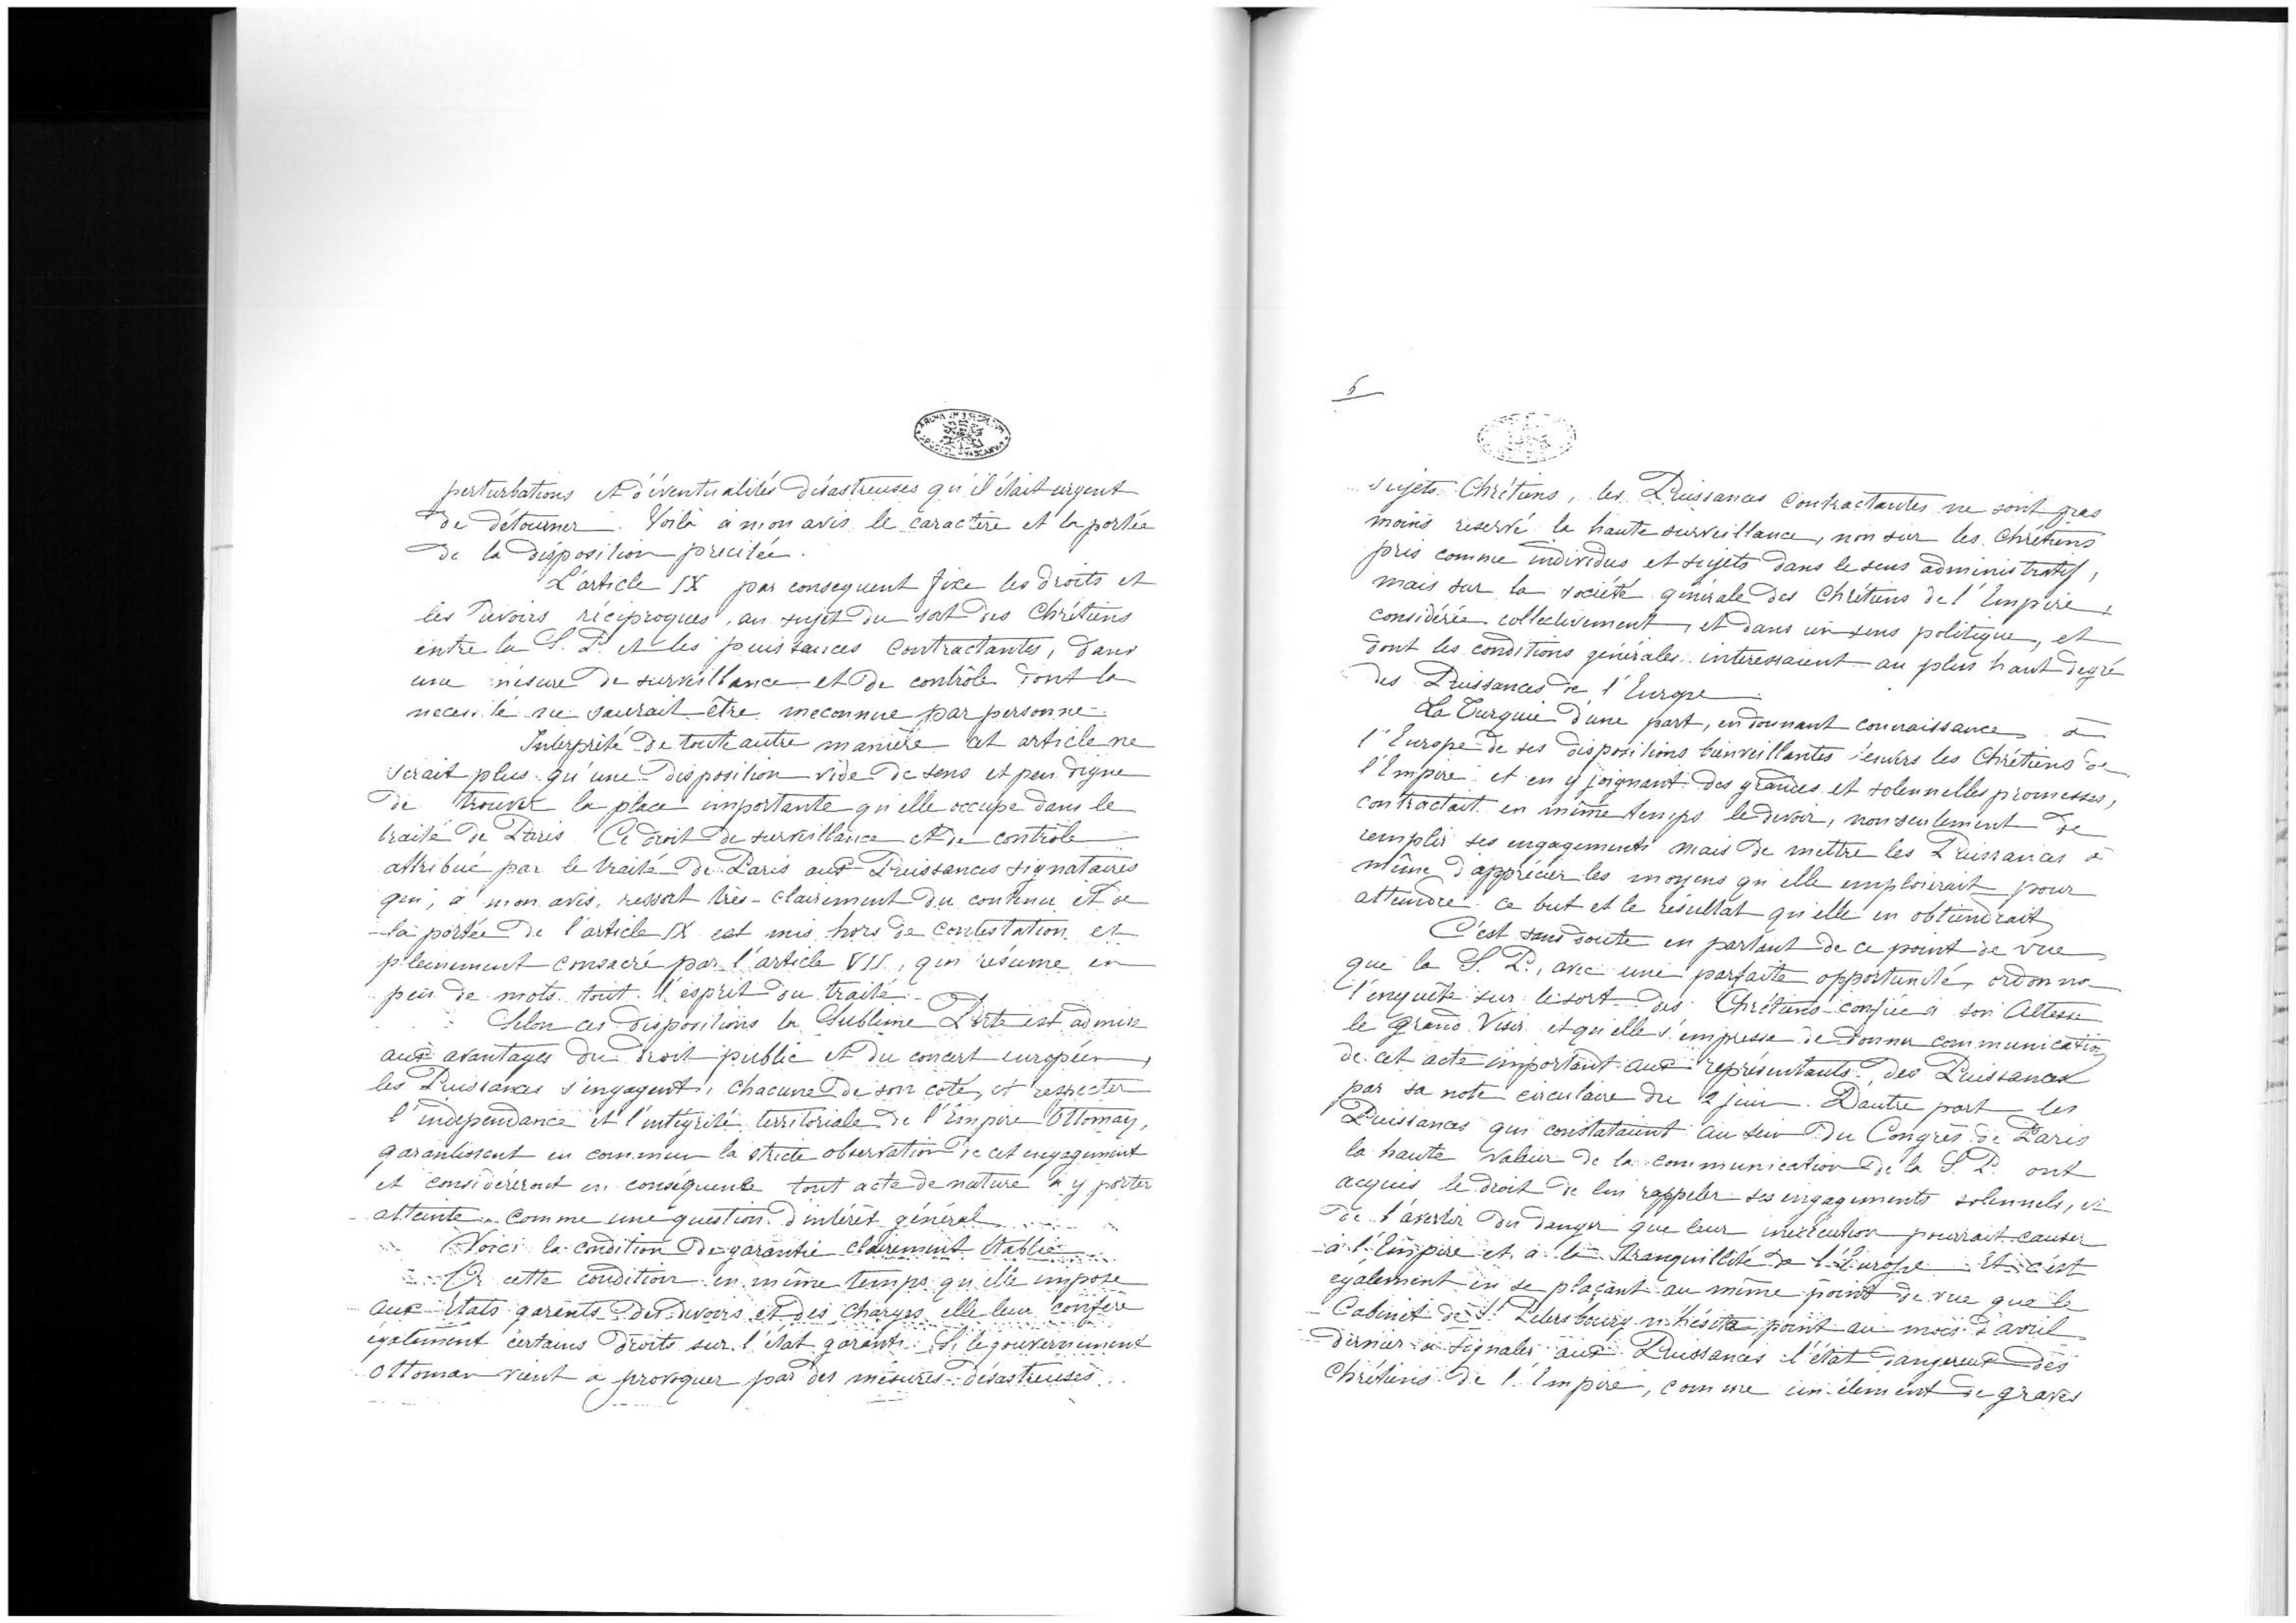 perturbations et d'éventualités désastreuses qu'il était urgent
de détourner. Voilà à mon avis le caractère et la portée
de la disposition precitée.
L'article IX par consequent fixe les droits et
les devoirs réciproques, au sujet du sort des Chrétiens
entre la S. P. et les puissances Contractantes, dans
une mesure de surveillance et de contrôle dont la
necessité ne saurait être meconnue par personne.
Interprété de toute autre manière cet article ne
serait plus qu'une disposition vide de sens et peu digne
de trouver la place importante qu'elle occupe dans le
traité de Paris. Ce droit de surveillance et de contrôle
attribué par le traité de Paris aux Puissances signataires
qui, à mon avis, ressort très-clairement du contenu et de
la portée de l'article IX est mis hors de contestation et
pleinement consacré par l'article VII, qui résume en
peu de mots tout l'esprit du traité.
Selon ces dispositions la Sublime Porte est admise
aux avantages du droit public et du concert européen,
les Puissances s'engagent, chacune de son coté, à respecter
l'independance et l'intégrité territoriale de l'Empire Ottoman,
garantissent en commun la stricte observation de cet engagement
et considéreront en conséquence tout acte de nature à y porter
atteinte comme une question d'intérêt général.
Voici la condition de garantie clairement établie.
Or cette condition en même temps qu'elle impose
aux États garants des devoirs et des charges elle leur confère
également certains droits sur l'état garanti. Si le gouvernement
Ottoman vient à provoquer par des mesures désastreuses
5
sujets Chrétiens, les Puissances Contractantes ne sont pas
moins reservé la haute surveillance, non sur les Chrétiens
pris comme individus et sujets dans le sens administratif,
mais sur la société générale des Chrétiens de l'Empire,
considérée collectivement, et dans un sens politique, et
dont les conditions générales interessaient au plus haut degré
des Puissances de l'Europe.
La Turquie d'une part, en donnant connaissance à
l'Europe de ses dispositions bienveillantes envers les Chrétiens de
l'Empire et en y joignant des grandes et solennelles promesses,
contractait en même temps le devoir, non seulement de
remplir ses engagements mais de mettre les Puissances à
même d'apprécier les moyens qu'elle emploierait pour
atteindre ce but et le résultat qu'elle en obtiendrait
C'est sans doute en partant de ce point de vue
que la S. P., avec une parfaite opportunité, ordonna
l'enquête sur le sort des Chrétiens confiée à son Altesse
le Grand Visir et qu'elle s'empressa de donner communication
de cet acte important aux représentants des Puissances
par sa note circulaire du 2 juin. D'autre part les
Puissances qui constataient au sein du Congrès de Paris
la haute valeur de la communication de la S. P. ont
acquis le droit de lui rappeler ses engagements solennels, et
de l'avertir du danger que leur inexécution pourrait causer
à l'Empire et à la tranquillité de l'Europe. Et c'est
également en se plaçant au même point de vue que le
Cabinet de St Petersbourg n'hésita point au mois d'avril
dernier à signaler aux Puissances l'état dangereux des
Chrétiens de l'Empire, comme un élément de graves